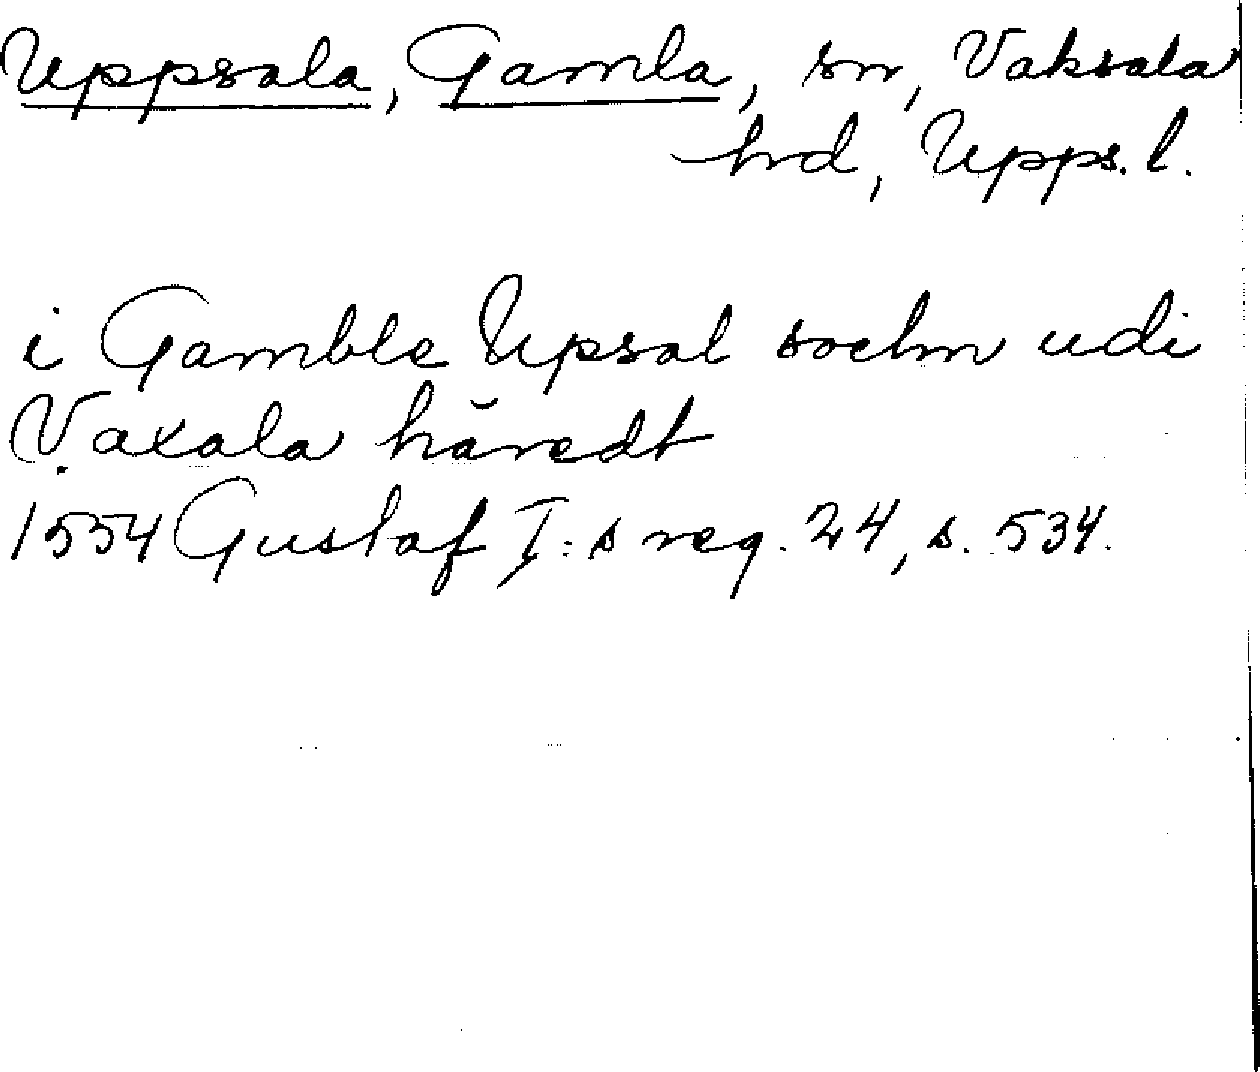 Uppsala, Gamla, sn, Vaksala
hrd, Upps. l.
i Gamble Upsal sochn udi
Vaxala häredt
1554 Gustaf I:s reg. 24, s. 534.